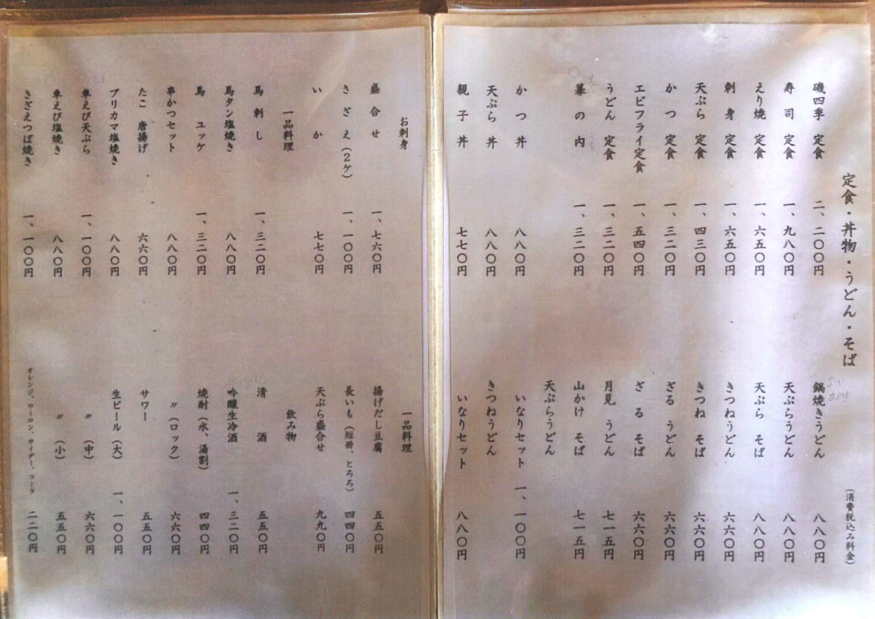 定食・丼物・うどん・そば
(消費税込み料金)
磯四季 定食 二、二〇〇円
寿司 定食 一、九八〇円
えり焼 定食 一、六五〇円
刺身 定食 一、六五〇円
天ぷら 定食 一、四三〇円
かつ 定食 一、三二〇円
エビフライ定食 一、五四〇円
うどん 定食 一、三二〇円
幕の内 一、三二〇円
かつ丼 八八〇円
天ぷら丼 八八〇円
親子丼 七七〇円
鍋焼きうどん 八八〇円
天ぷらうどん 八八〇円
天ぷら そば 八八〇円
きつねうどん 六六〇円
きつね そば 六六〇円
ざる うどん 六六〇円
ざる そば 六六〇円
月見 うどん 七一五円
山かけ そば 七一五円
天ぷらうどん
いなりセット 一、一〇〇円
きつねうどん
いなりセット 八八〇円
お刺身
盛合せ 一、七六〇円
さざえ(2ケ) 一、一〇〇円
いか 七七〇円
一品料理
馬刺し 一、三二〇円
馬タン塩焼き 八八〇円
馬ユッケ 一、三二〇円
串かつセット 八八〇円
たこ 唐揚げ 六六〇円
ブリカマ塩焼き 八八〇円
車えび天ぷら 一、一〇〇円
車えび塩焼き 八八〇円
さざえつぼ焼き 一、一〇〇円
一品料理
揚げだし豆腐 五五〇円
長いも(短冊、とろろ) 四四〇円
天ぷら盛合せ 九九〇円
飲み物
清酒 五五〇円
吟醸生冷酒 一、三二〇円
焼酎(水、湯割) 四四〇円
〃(ロック) 六六〇円
サワー 五五〇円
生ビール(大) 一、一〇〇円
〃(中) 六六〇円
〃(小) 五五〇円
オレンジ、ウーロン、サイダー、コーラ 二二〇円